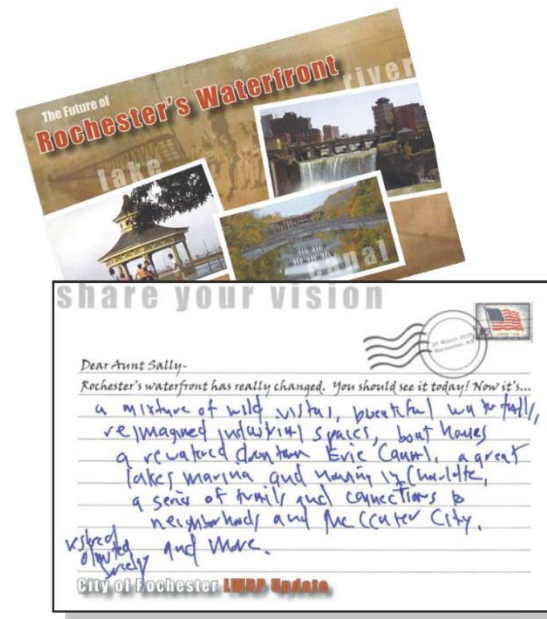 The Future of
Rochester's Waterfront
river
lake
canal
share your vision
27 March 20
Rochester, NY
Dear Aunt Sally-
Rochester's waterfront has really changed. You should see it today! Now it's...
a mixture of wild vistas, beautiful waterfalls,
reimagined industrial spaces, boat houses
a rewatered downtown Erie Canal, a great
lakes marina and housing in Charlotte,
a series of trails and connections to
neighborhoods and the Center City,
and more.
restored
Olmsted
City of Rochester LWRP Update